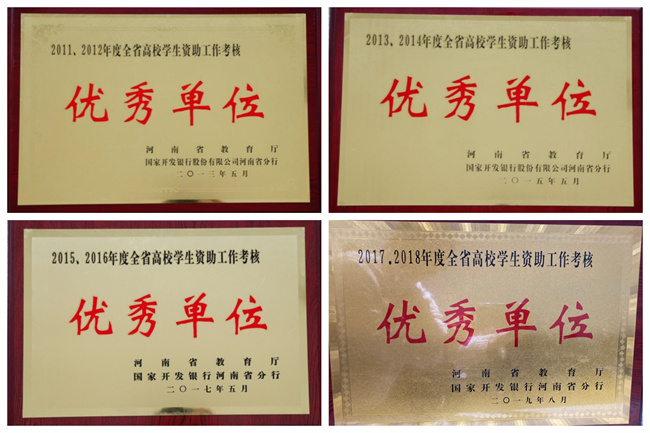 2011、2012年度全省高校学生资助工作考核
优秀单位
河南省教育厅
国家开发银行股份有限公司河南省分行
二〇一三年五月
2013、2014年度全省高校学生资助工作考核
优秀单位
河南省教育厅
国家开发银行股份有限公司河南省分行
二〇一五年五月
2015、2016年度全省高校学生资助工作考核
优秀单位
河南省教育厅
国家开发银行河南省分行
二〇一七年五月
2017、2018年度全省高校学生资助工作考核
优秀单位
河南省教育厅
国家开发银行河南省分行
二〇一九年八月